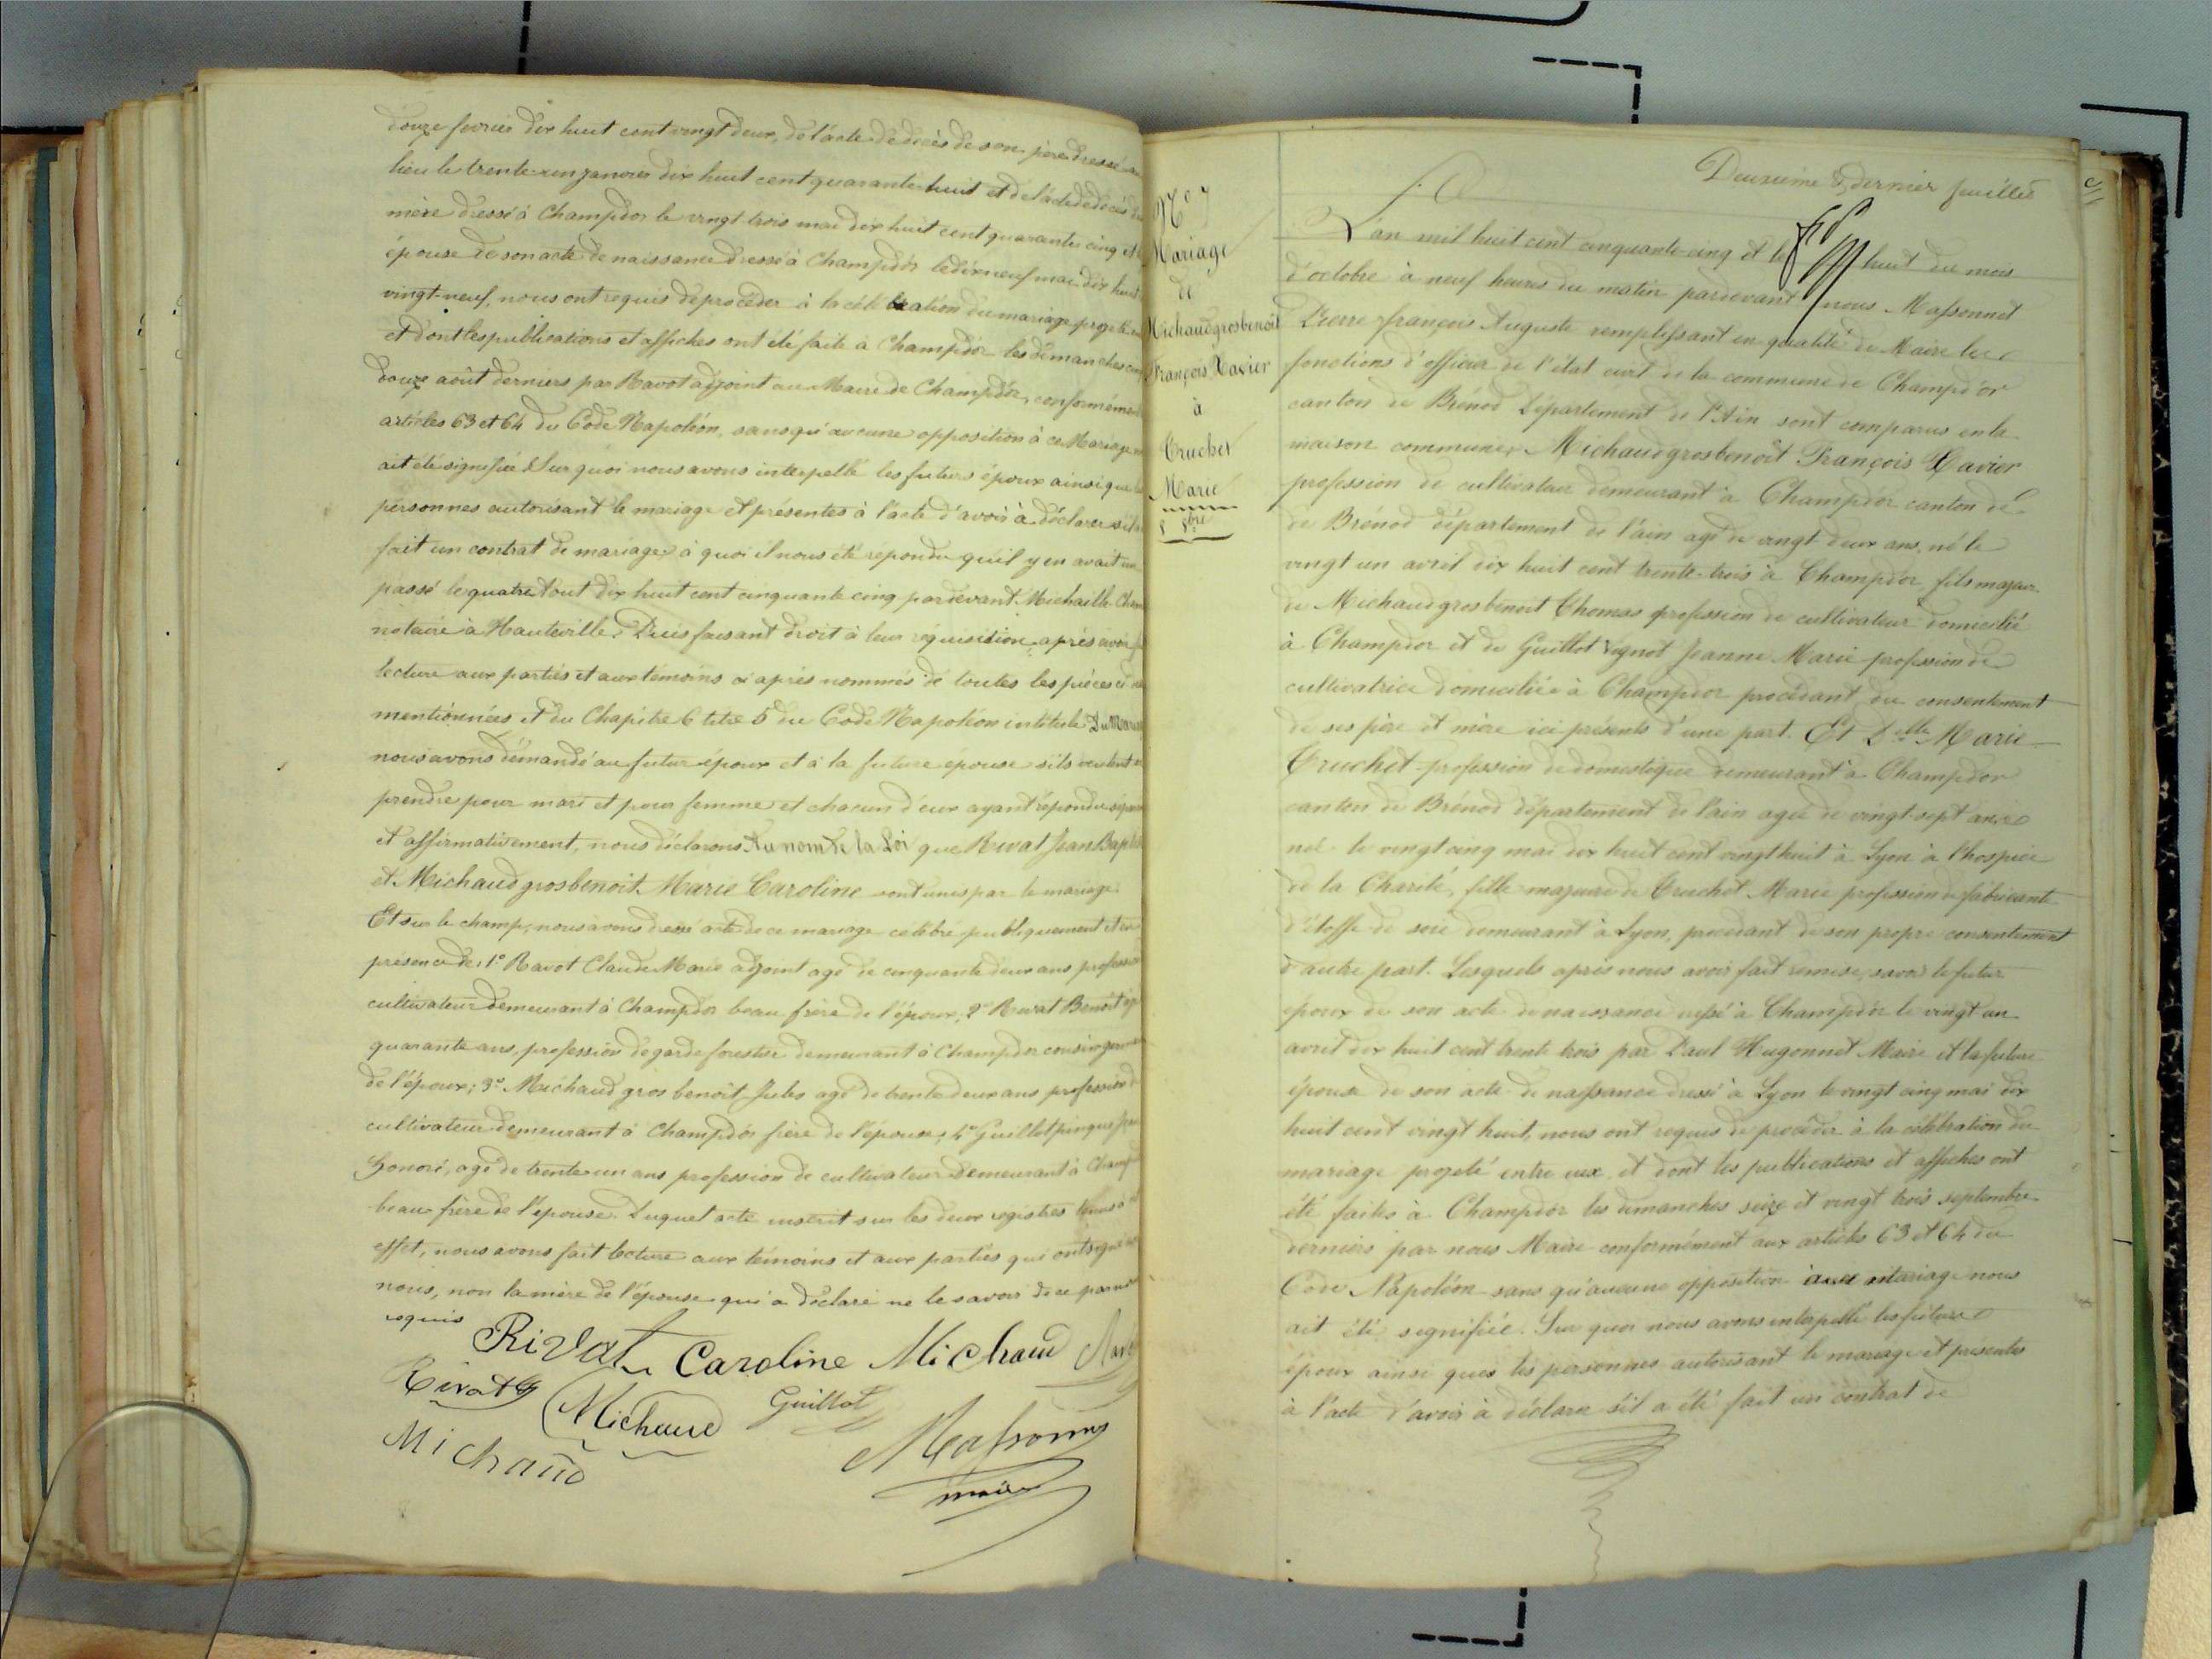 douze fevrier dix huit cent vingt deux, de l'acte de décès de son père dressé au
lieu le trente un janvier dix huit cent quarante huit et de l'acte de décès de
mère dressé à Champdor le vingt trois mai dix huit cent quarante cinq et
épouse de son acte de naissance dressé à Champdor le dix neuf mai dix huit
vingt-neuf, nous ont requis de procéder à la célébration du mariage projeté
et dont les publications et affiches ont été faite à Champdor les dimanches
douze août derniers par Ravot adjoint au Maire de Champdor, conformément
articles 63 et 64 du Code Napoléon, sans qu'aucune opposition à ce Mariage
ait été signifiée. Sur quoi nous avons interpellé les futurs époux ainsi que
personnes autorisant le mariage et présentes à l'acte d'avoir à déclarer s'il
fait un contrat de mariage à quoi il nous été répondu qu'il y en avait un
passé le quatre aout dix huit cent cinquante cinq pardevant Michaille
notaire à Hauteville. Puis faisant droit à leur réquisition, après avoir
lecture aux parties et aux témoins ci après nommés de toutes les pièces ci
mentionnées et du Chapitre 6 titre 5 du Code Napoléon intitulé Du Mariage
nous avons demandé au futur époux et à la future épouse s'ils veulent
prendre pour mari et pour femme et chacun d'eux ayant répondu
et affirmativement, nous déclarons Au nom de la Loi que Rivat Jean Baptiste
et Michaudgrosbenoit Marie Caroline sont unis par le mariage.
Et sur le champ, nous avons dressé acte de ce mariage célébré publiquement et en
présence de: 1° Ravot Claude Marie adjoint agé de cinquante deux ans profession
cultivateur demeurant à Champdor beau frère de l'époux; 2° Rivat Benoit
quarante ans, profession de garde forestier demeurant à Champdor cousin germain
de l'époux; 3° Michaud gros benoit Jules agé de trente deux ans profession de
cultivateur demeurant à Champdor frère de l'épouse; 4° Guillot pinque
honoré, agé de trente un ans profession de cultivateur demeurant à Champ
beau frère de l'épouse. Duquel acte inscrit sur les deux registres tenus à
effet, nous avons fait lecture aux témoins et aux parties qui ont signé
nous, non la mère de l'épouse qui a déclaré ne le savoir de ce par nous
requis
Rivat Caroline Michaud
Rivat Michaud Guillot
Michaud Massonnet
maire
Deuxième & dernier feuillet
N° 7
Mariage
de
Michaudgrosbenoit
François Xavier
à
Truchet
Marie
8 8bre
L'an mil huit cent cinquante-cinq et le huit du mois
d'octobre à neuf heures du matin pardevant nous Massonnet
Pierre françois Auguste remplissant en qualité de Maire les
fonctions d'officier de l'état civil de la commune de Champdor
canton de Brénod Département de l'Ain sont comparus en la
maison commune, Michaudgrosbenoit François Xavier
profession de cultivateur demeurant à Champdor canton de
de Brénod département de l'ain agé de vingt deux ans, né le
vingt un avril dix huit cent trente-trois à Champdor fils majeur
de Michaudgrosbenoit Thomas profession de cultivateur domicilié
à Champdor et de Guillot Vignot Jeanne Marie profession de
cultivatrice domiciliée à Champdor procédant du consentement
de ses père et mère ici présents d'une part. Et Delle Marie
Truchet profession de domestique demeurant à Champdor
canton de Brénod département de l'ain agée de vingt-sept ans
née le vingt cinq mai dix huit cent vingt huit à Lyon à l'hospice
de la Charité, fille majeure de Truchet Marie profession de fabricante
d'étoffe de soie demeurant à Lyon, procédant de son propre consentement
d'autre part. Lesquels après nous avoir fait remise, savoir le futur
epoux de son acte de naissance dressé à Champdor le vingt un
avril dix huit cent trente trois par Paul Hugonnet Maire et la future
épouse de son acte de naissance dressé à Lyon le vingt cinq mai dix
huit cent vingt huit, nous ont requis de procéder à la célébration du
mariage projeté entre eux et dont les publications et affiches ont
été faites à Champdor les dimanches seize et vingt trois septembre
derniers par nous Maire conformément aux articles 63 et 64 du
Code Napoléon sans qu'aucune opposition mariage nous
ait été signifiée. Sur quoi nous avons interpellé les futurs
époux ainsi que les personnes autorisant le mariage et présentes
à l'acte d'avoir à déclarer s'il a été fait un contrat de